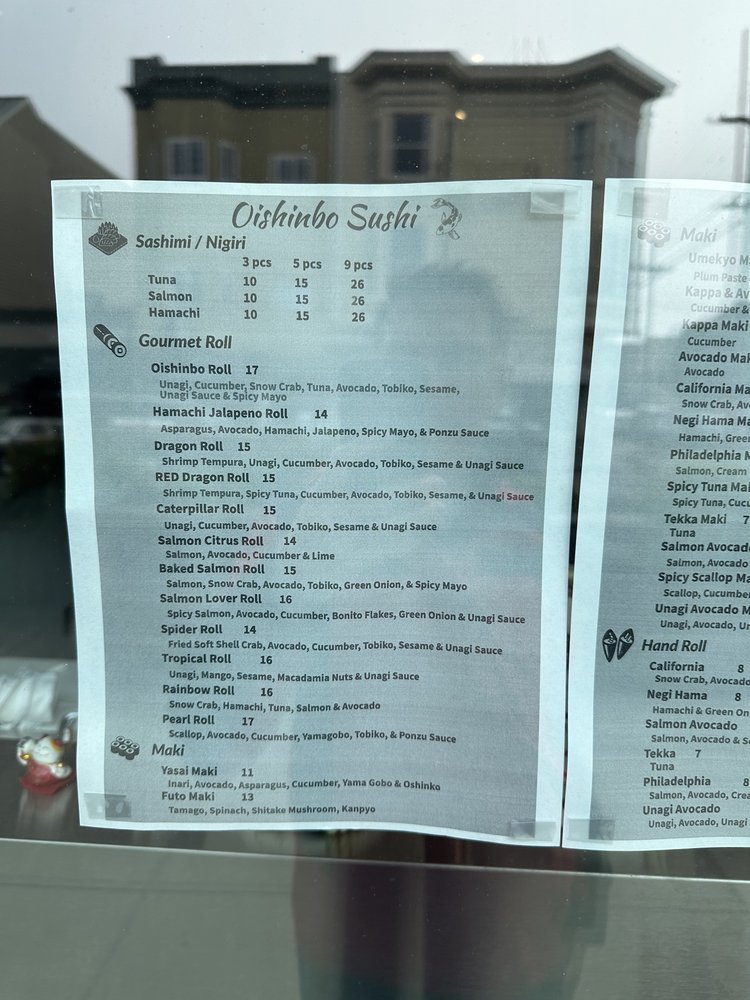 Oishinbo Sushi
Sashimi / Nigiri
3 pcs 5 pcs 9 pcs
Tuna 10 15 26
Salmon 10 15 26
Hamachi 10 15 26
Gourmet Roll
Oishinbo Roll 17
Unagi, Cucumber, Snow Crab, Tuna, Avocado, Tobiko, Sesame,
Unagi Sauce & Spicy Mayo
Hamachi Jalapeno Roll 14
Asparagus, Avocado, Hamachi, Jalapeno, Spicy Mayo, & Ponzu Sauce
Dragon Roll 15
Shrimp Tempura, Unagi, Cucumber, Avocado, Tobiko, Sesame & Unagi Sauce
RED Dragon Roll 15
Shrimp Tempura, Spicy Tuna, Cucumber, Avocado, Tobiko, Sesame, & Unagi Sauce
Caterpillar Roll 15
Unagi, Cucumber, Avocado, Tobiko, Sesame & Unagi Sauce
Salmon Citrus Roll 14
Salmon, Avocado, Cucumber & Lime
Baked Salmon Roll 15
Salmon, Snow Crab, Avocado, Tobiko, Green Onion, & Spicy Mayo
Salmon Lover Roll 16
Spicy Salmon, Avocado, Cucumber, Bonito Flakes, Green Onion & Unagi Sauce
Spider Roll 14
Fried Soft Shell Crab, Avocado, Cucumber, Tobiko, Sesame & Unagi Sauce
Tropical Roll 16
Unagi, Mango, Sesame, Macadamia Nuts & Unagi Sauce
Rainbow Roll 16
Snow Crab, Hamachi, Tuna, Salmon & Avocado
Pearl Roll 17
Scallop, Avocado, Cucumber, Yamagobo, Tobiko, & Ponzu Sauce
Maki
Yasai Maki 11
Inari, Avocado, Asparagus, Cucumber, Yama Gobo & Oshinko
Futo Maki 13
Tamago, Spinach, Shitake Mushroom, Kanpyo
Maki
Umekyo Ma
Plum Paste
Kappa & Av
Cucumber &
Kappa Maki
Cucumber
Avocado Mak
Avocado
California Ma
Snow Crab, Av
Negi Hama Ma
Hamachi, Green
Philadelphia M
Salmon, Cream
Spicy Tuna Mak
Spicy Tuna, Cucu
Tekka Maki 7
Tuna
Salmon Avocado
Salmon, Avocado
Spicy Scallop Ma
Scallop, Cucumber
Unagi Avocado M
Unagi, Avocado, Un
Hand Roll
California 8
Snow Crab, Avocado
Negi Hama 8
Hamachi & Green On
Salmon Avocado
Salmon, Avocado & S
Tekka 7
Tuna
Philadelphia 8
Salmon, Avocado, Crea
Unagi Avocado
Unagi, Avocado, Unagi